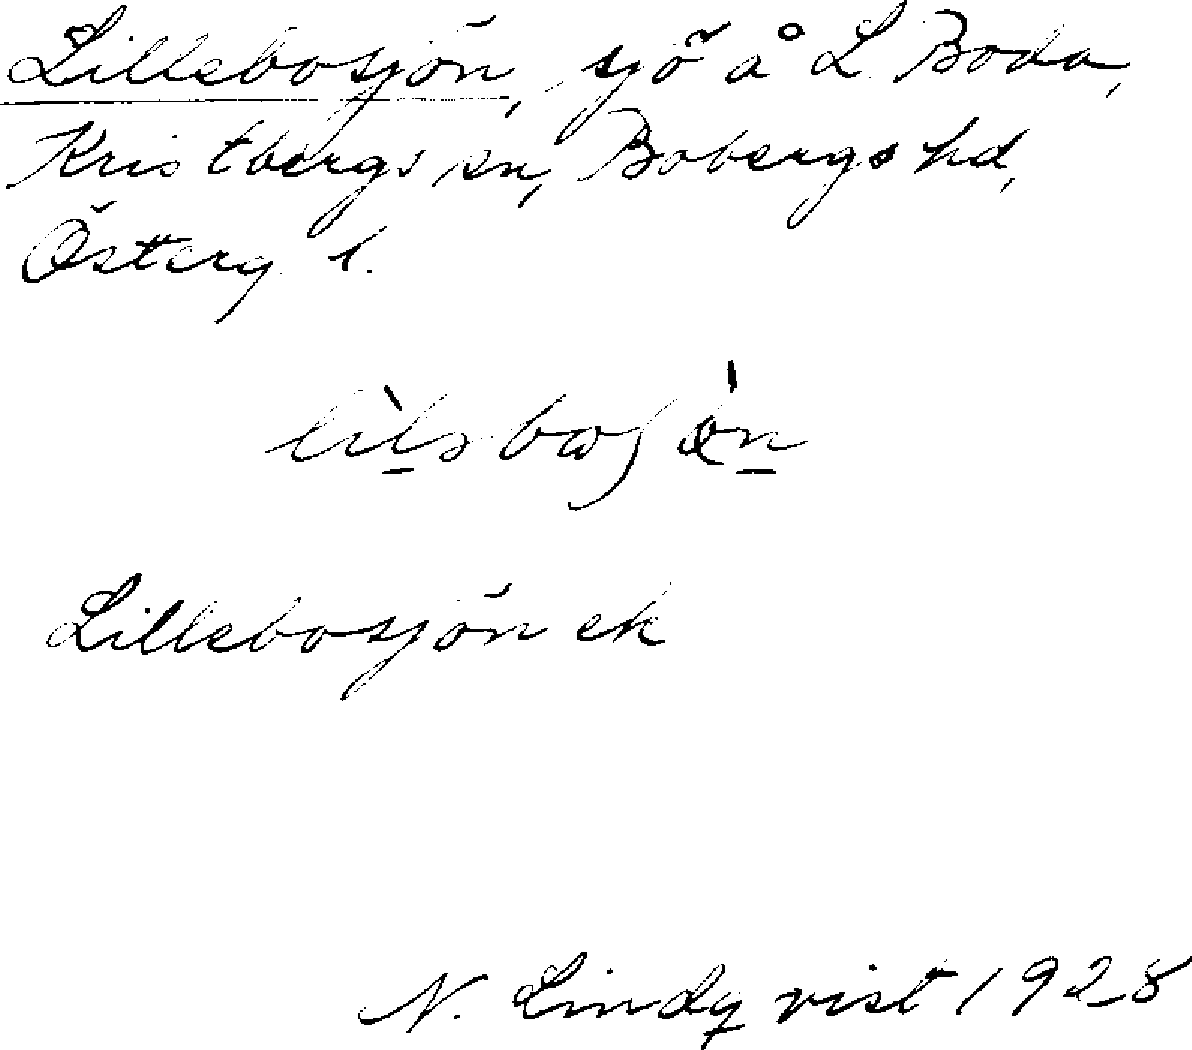 Lillebosjön, sjö å L Boda,
Kristbergs sn, Bobergs hd,
Österg l.
Lillebosjön ek
N. Lindqvist 1928